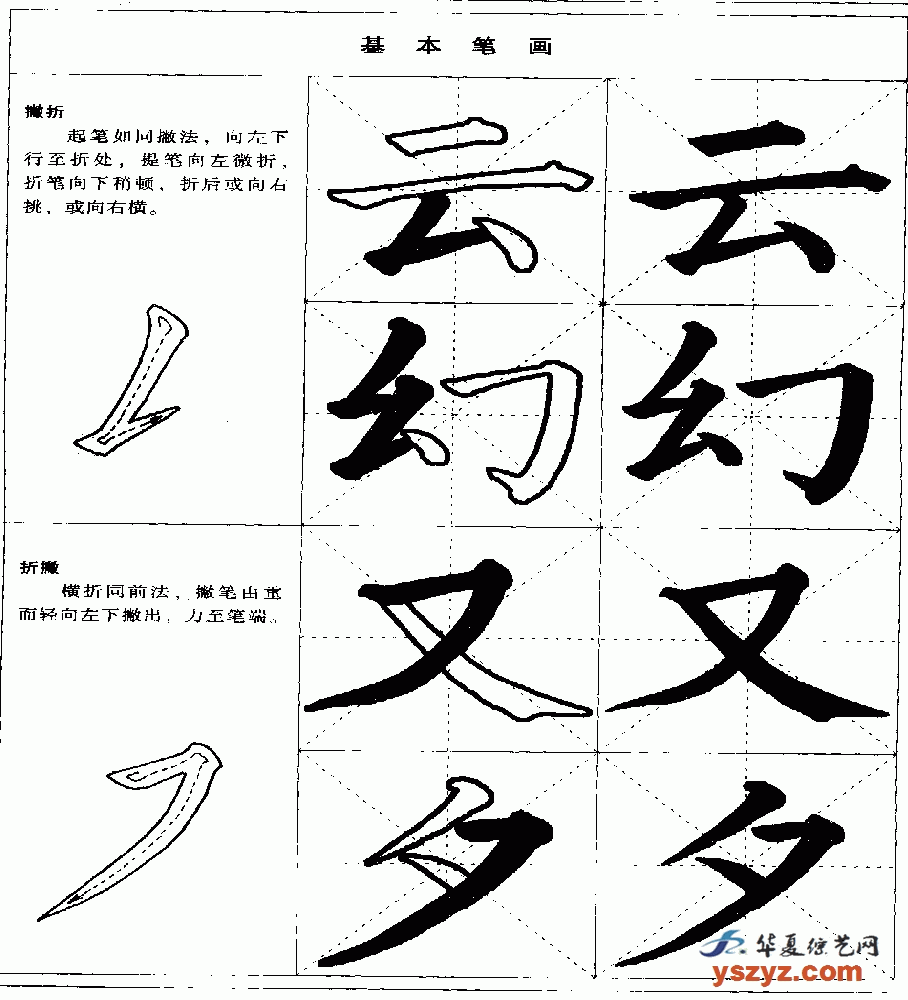 基本笔画
撇折
起笔如同撇法，向左下
行至折处，提笔向左微折，
折笔向下稍顿，折后或向右
挑，或向右横。
云 云
幻 幻
折撇
横折同前法，撇笔由重
而轻向左下撇出，力至笔端。
又 又
夕 夕
华夏综艺网
yszyz.com